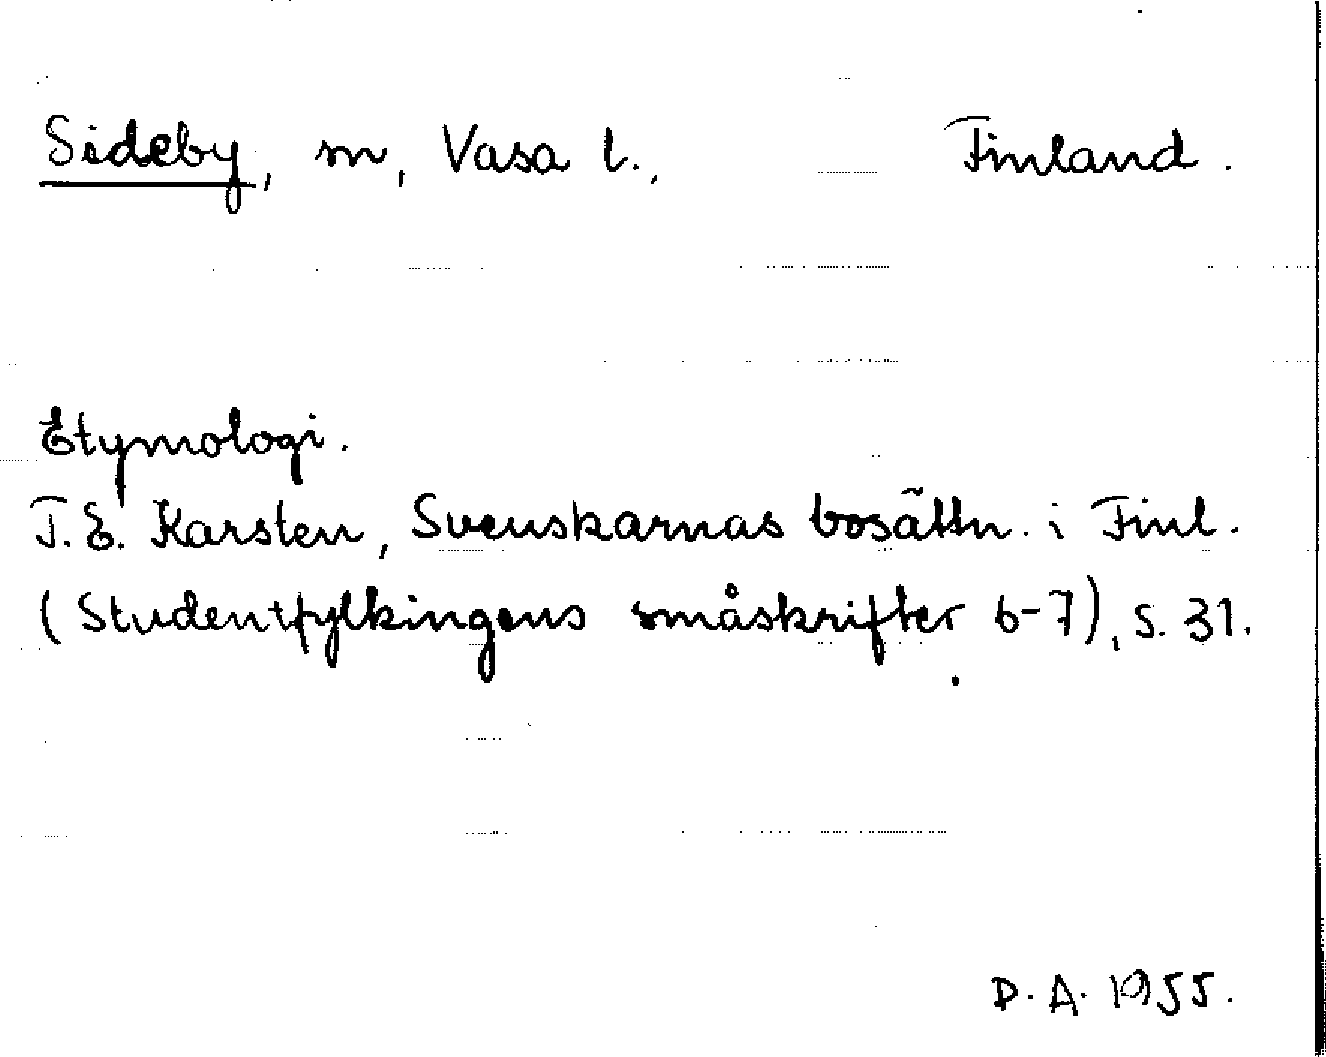 Sideby, sn, Vasa l., Finland.
Etymologi.
T. E. Karsten, Svenskarnas bosättn. i Finl.
(Studentfylkingens småskrifter 6-7), s. 31.
D. A. 1955.